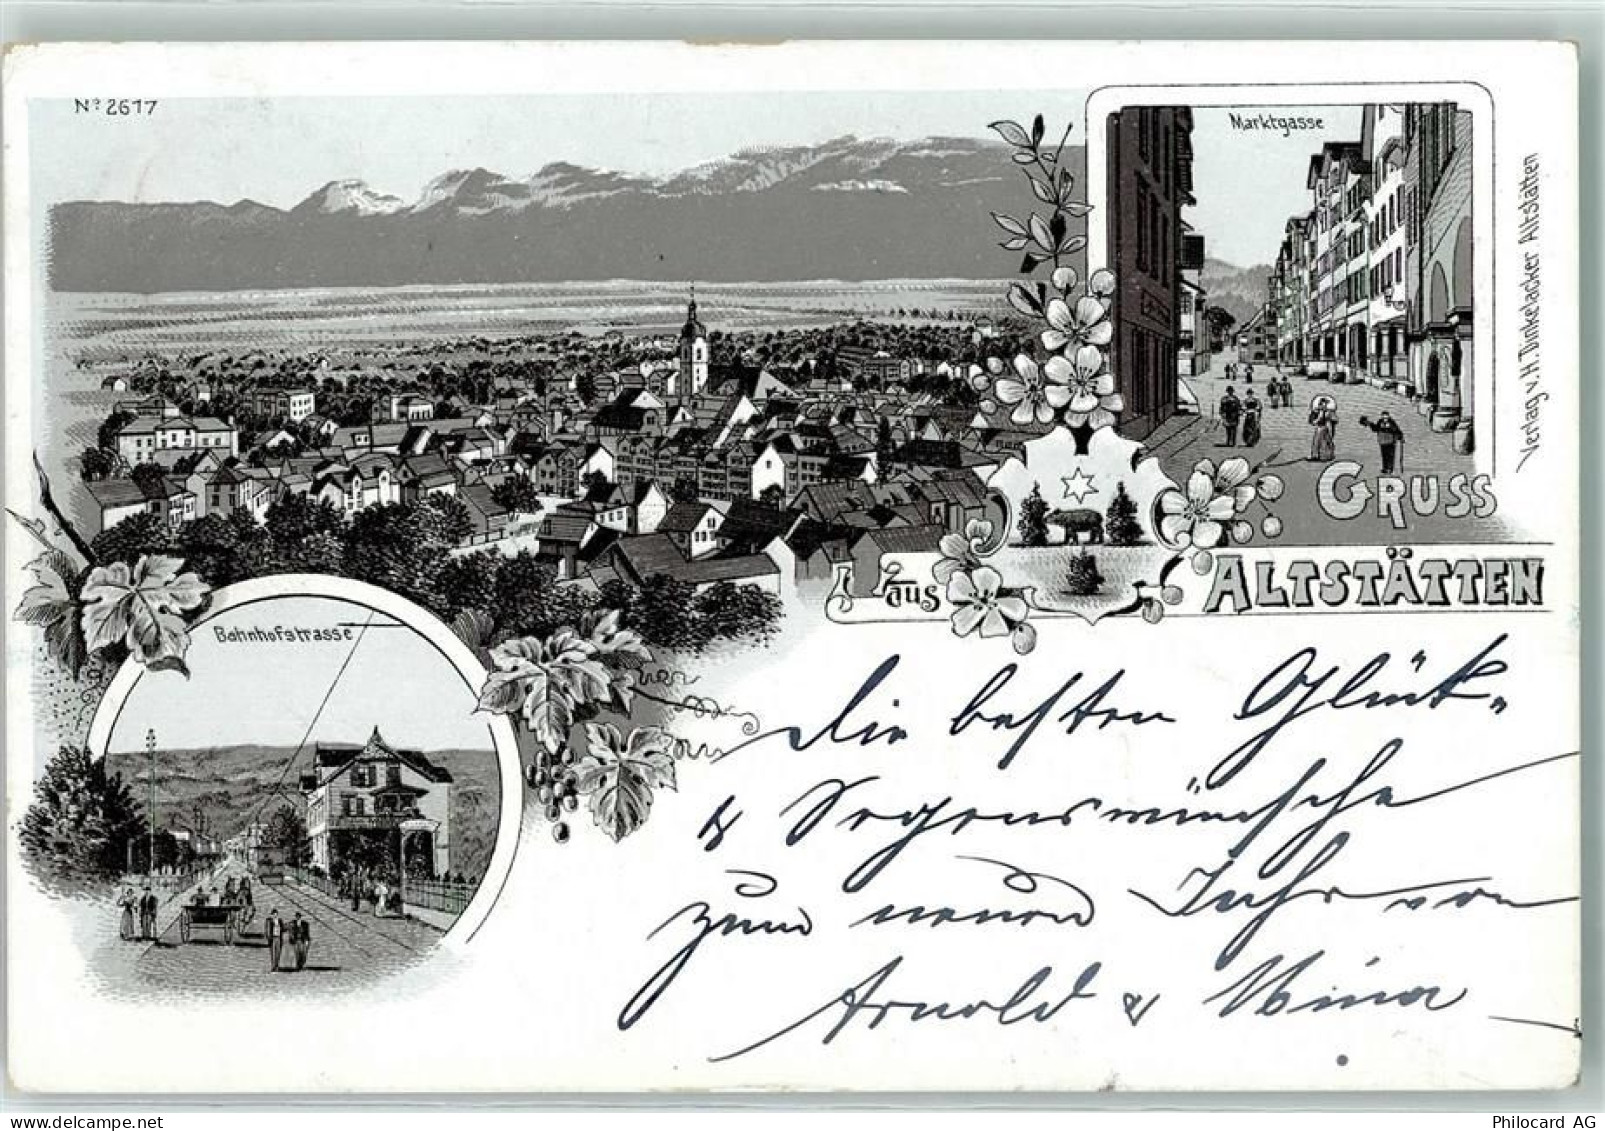 Nº 2617
Marktgasse
Verlag v. H. Dinkelacker Altstätten
GRUSS
aus ALTSTÄTTEN
Bahnhofstrasse
Die besten Glück-
& Segenswünsche
zum neuen Jahr von
Arnold &
Philocard AG